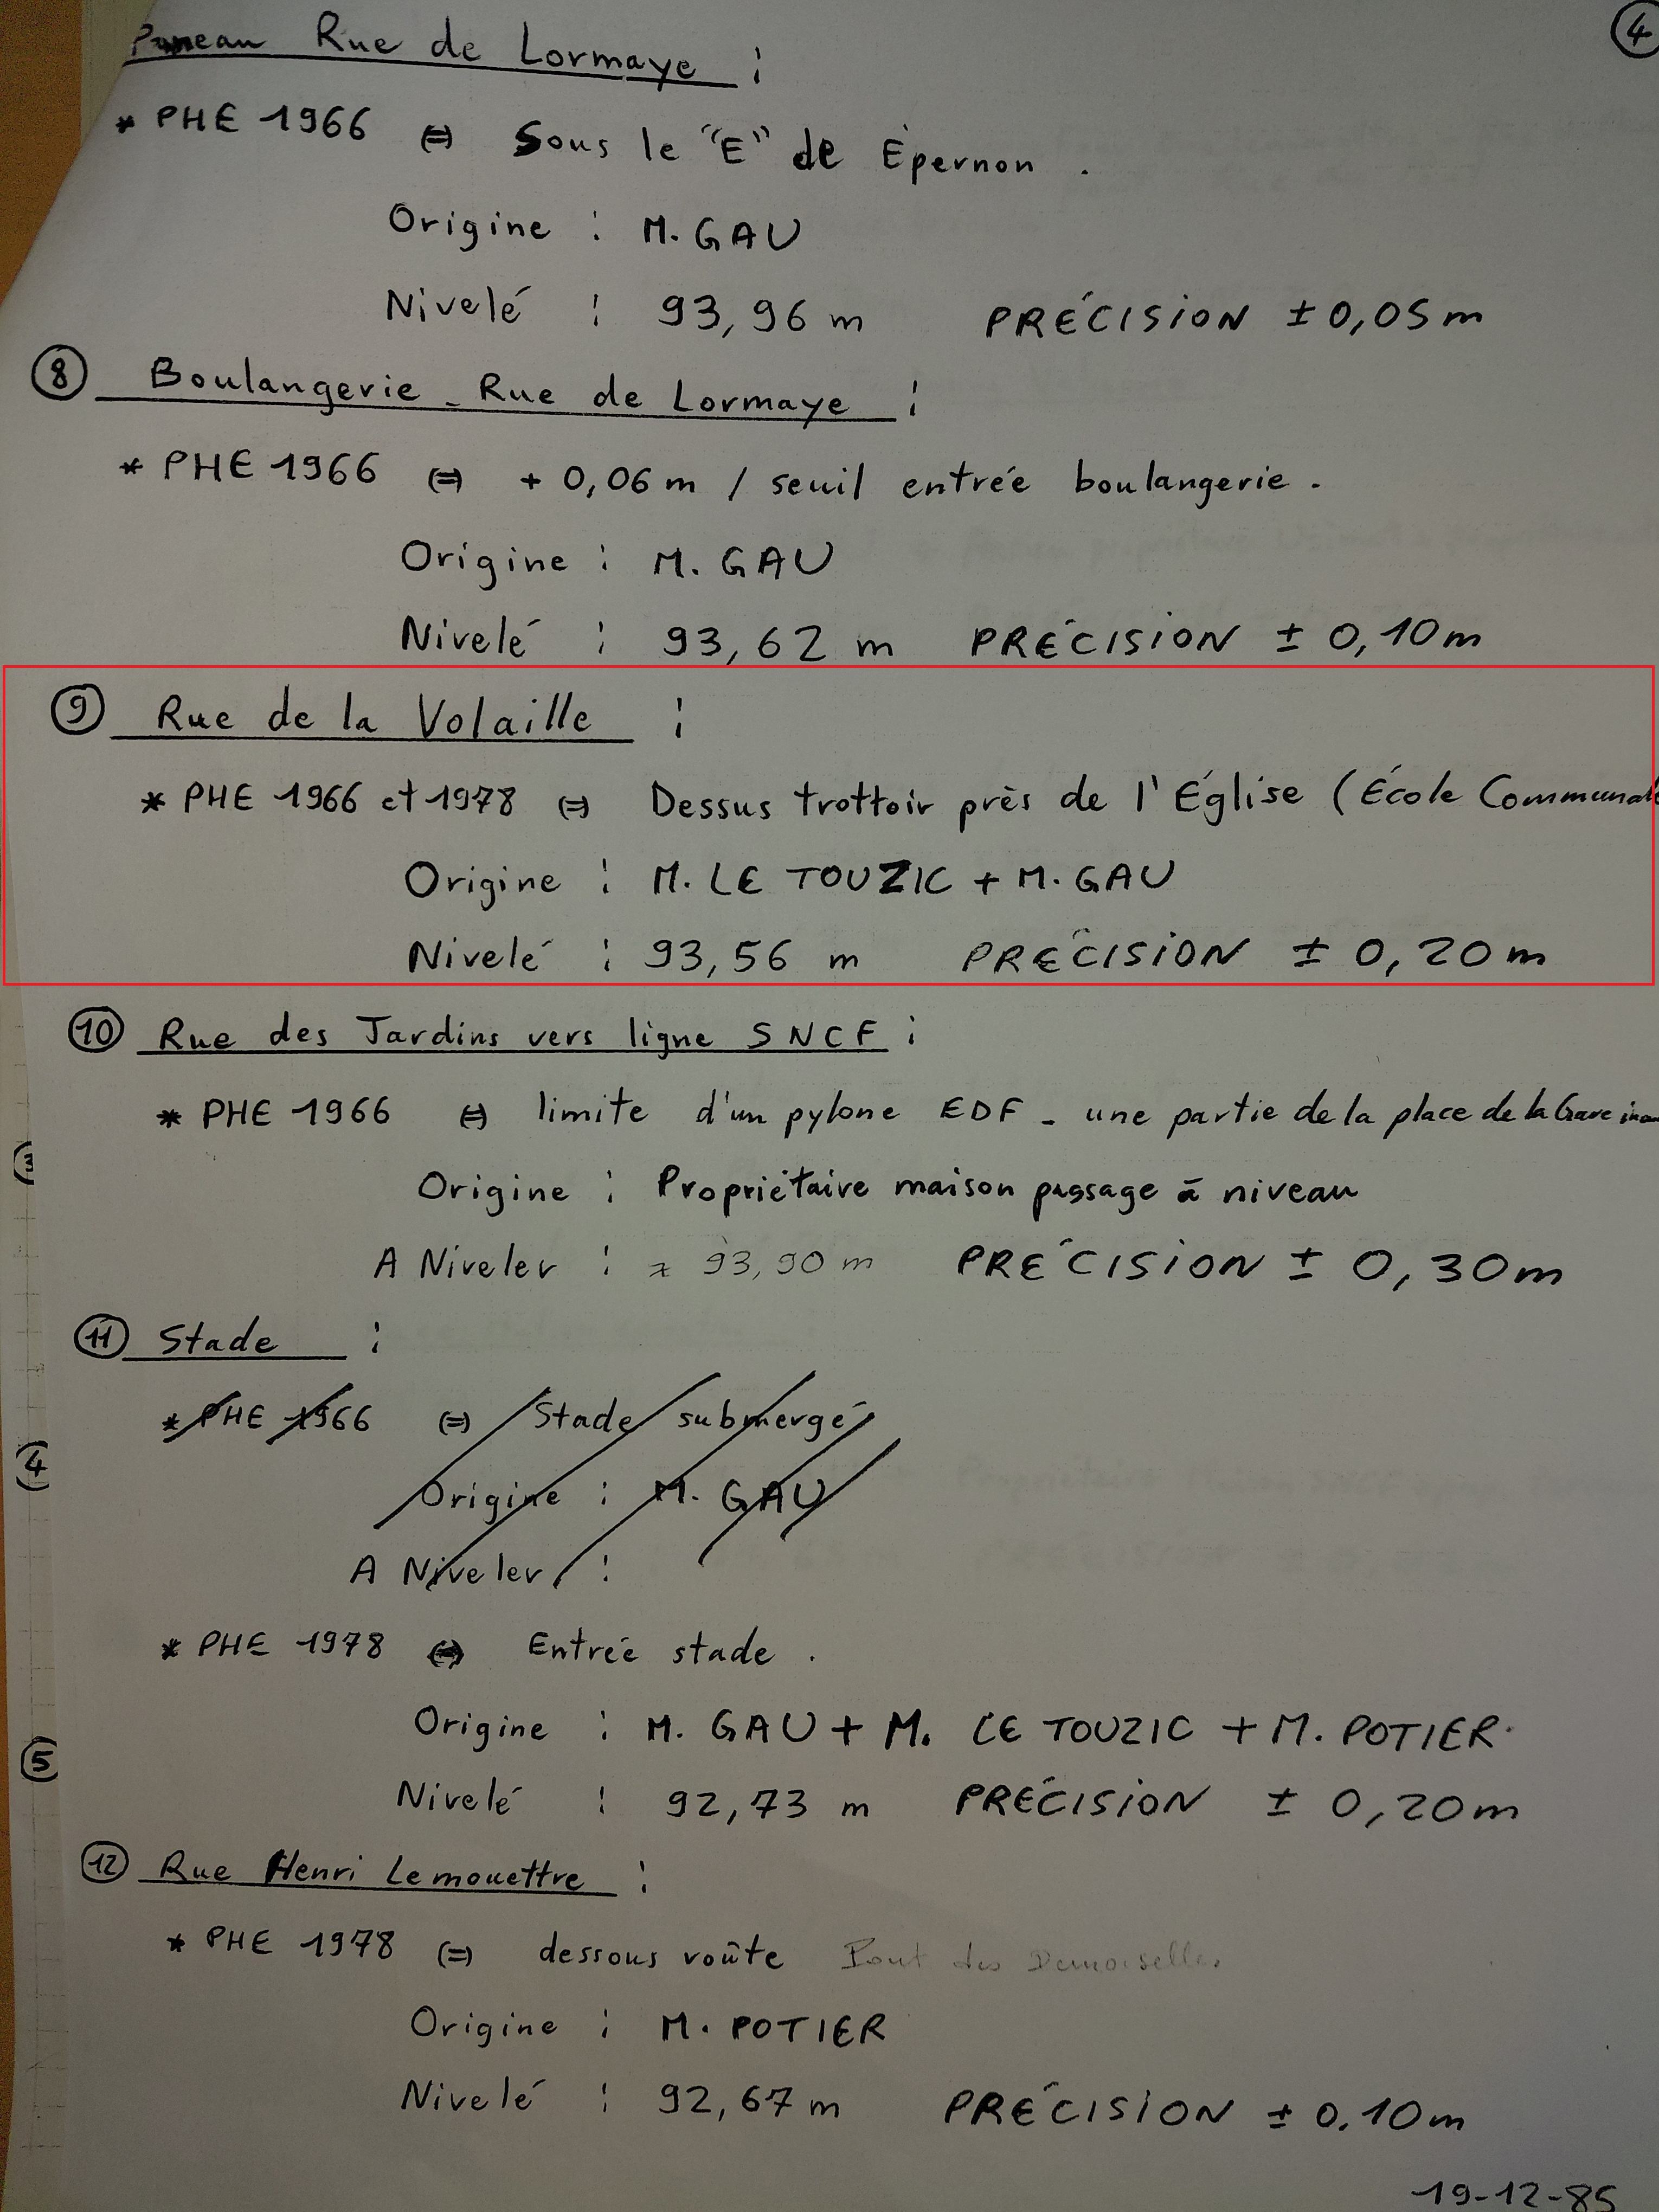 Panneau Rue de Lormaye :
④
* PHE 1966 (=) Sous le "E" de Épernon .
Origine : M. GAU
Nivelé : 93,96 m PRÉCISION ± 0,05 m
⑧ Boulangerie - Rue de Lormaye :
* PHE 1966 (=) + 0,06 m / seuil entrée boulangerie .
Origine : M. GAU
Nivelé : 93,62 m PRÉCISION ± 0,10 m
⑨ Rue de la Volaille :
* PHE 1966 et 1978 (=) Dessus trottoir près de l'Église (École Communale
Origine : M. LE TOUZIC + M. GAU
Nivelé : 93,56 m PRÉCISION ± 0,20 m
⑩ Rue des Jardins vers ligne SNCF :
* PHE 1966 (=) limite d'un pylone EDF - une partie de la place de la Gare
③
Origine : Propriétaire maison passage à niveau
A Niveler : ≈ 93,90 m PRÉCISION ± 0,30 m
⑪ Stade :
* PHE 1966 (=) Stade submergé
④
Origine : M. GAU
A Niveler :
* PHE 1978 (=) Entrée stade .
Origine : M. GAU + M. LE TOUZIC + M. POTIER.
⑤
Nivelé : 92,73 m PRÉCISION ± 0,20 m
⑫ Rue Henri Lemouettre :
* PHE 1978 (=) dessous voûte Pont des Demoiselles
Origine : M. POTIER
Nivelé : 92,67 m PRÉCISION ± 0,10 m
19-12-85